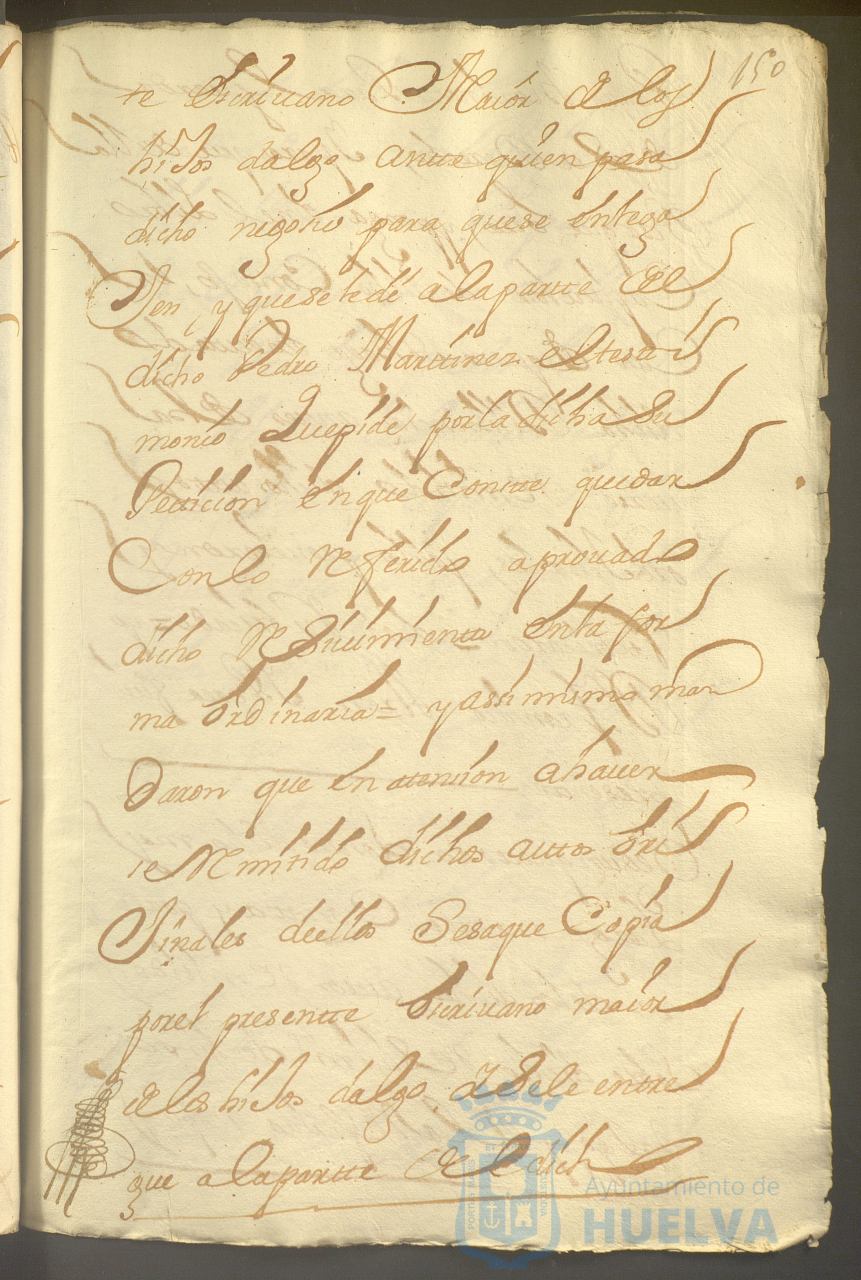 150
te Escriuano Maior de los
hiJos dalgo antte quien pasa
dicho negozio para quese entrega
Sen, y quesele dé alapartte del
dicho Pedro Marttinez eltesti
monio Quepide porla dicha su
Petticion enque Constte quedar
Conlo Referido aprouado
dicho Reciuimiento enla for
ma ordinaria = yassimismo man
daron que en atencion ahauer
se Remitido dichos auttos ori
Jinales deellos Sesaque Copia
porel presentte Escriuano maior
delos hiJos dalgo, y Sele entre
gue alapartte del dich
Ayuntamiento de
HUELVA